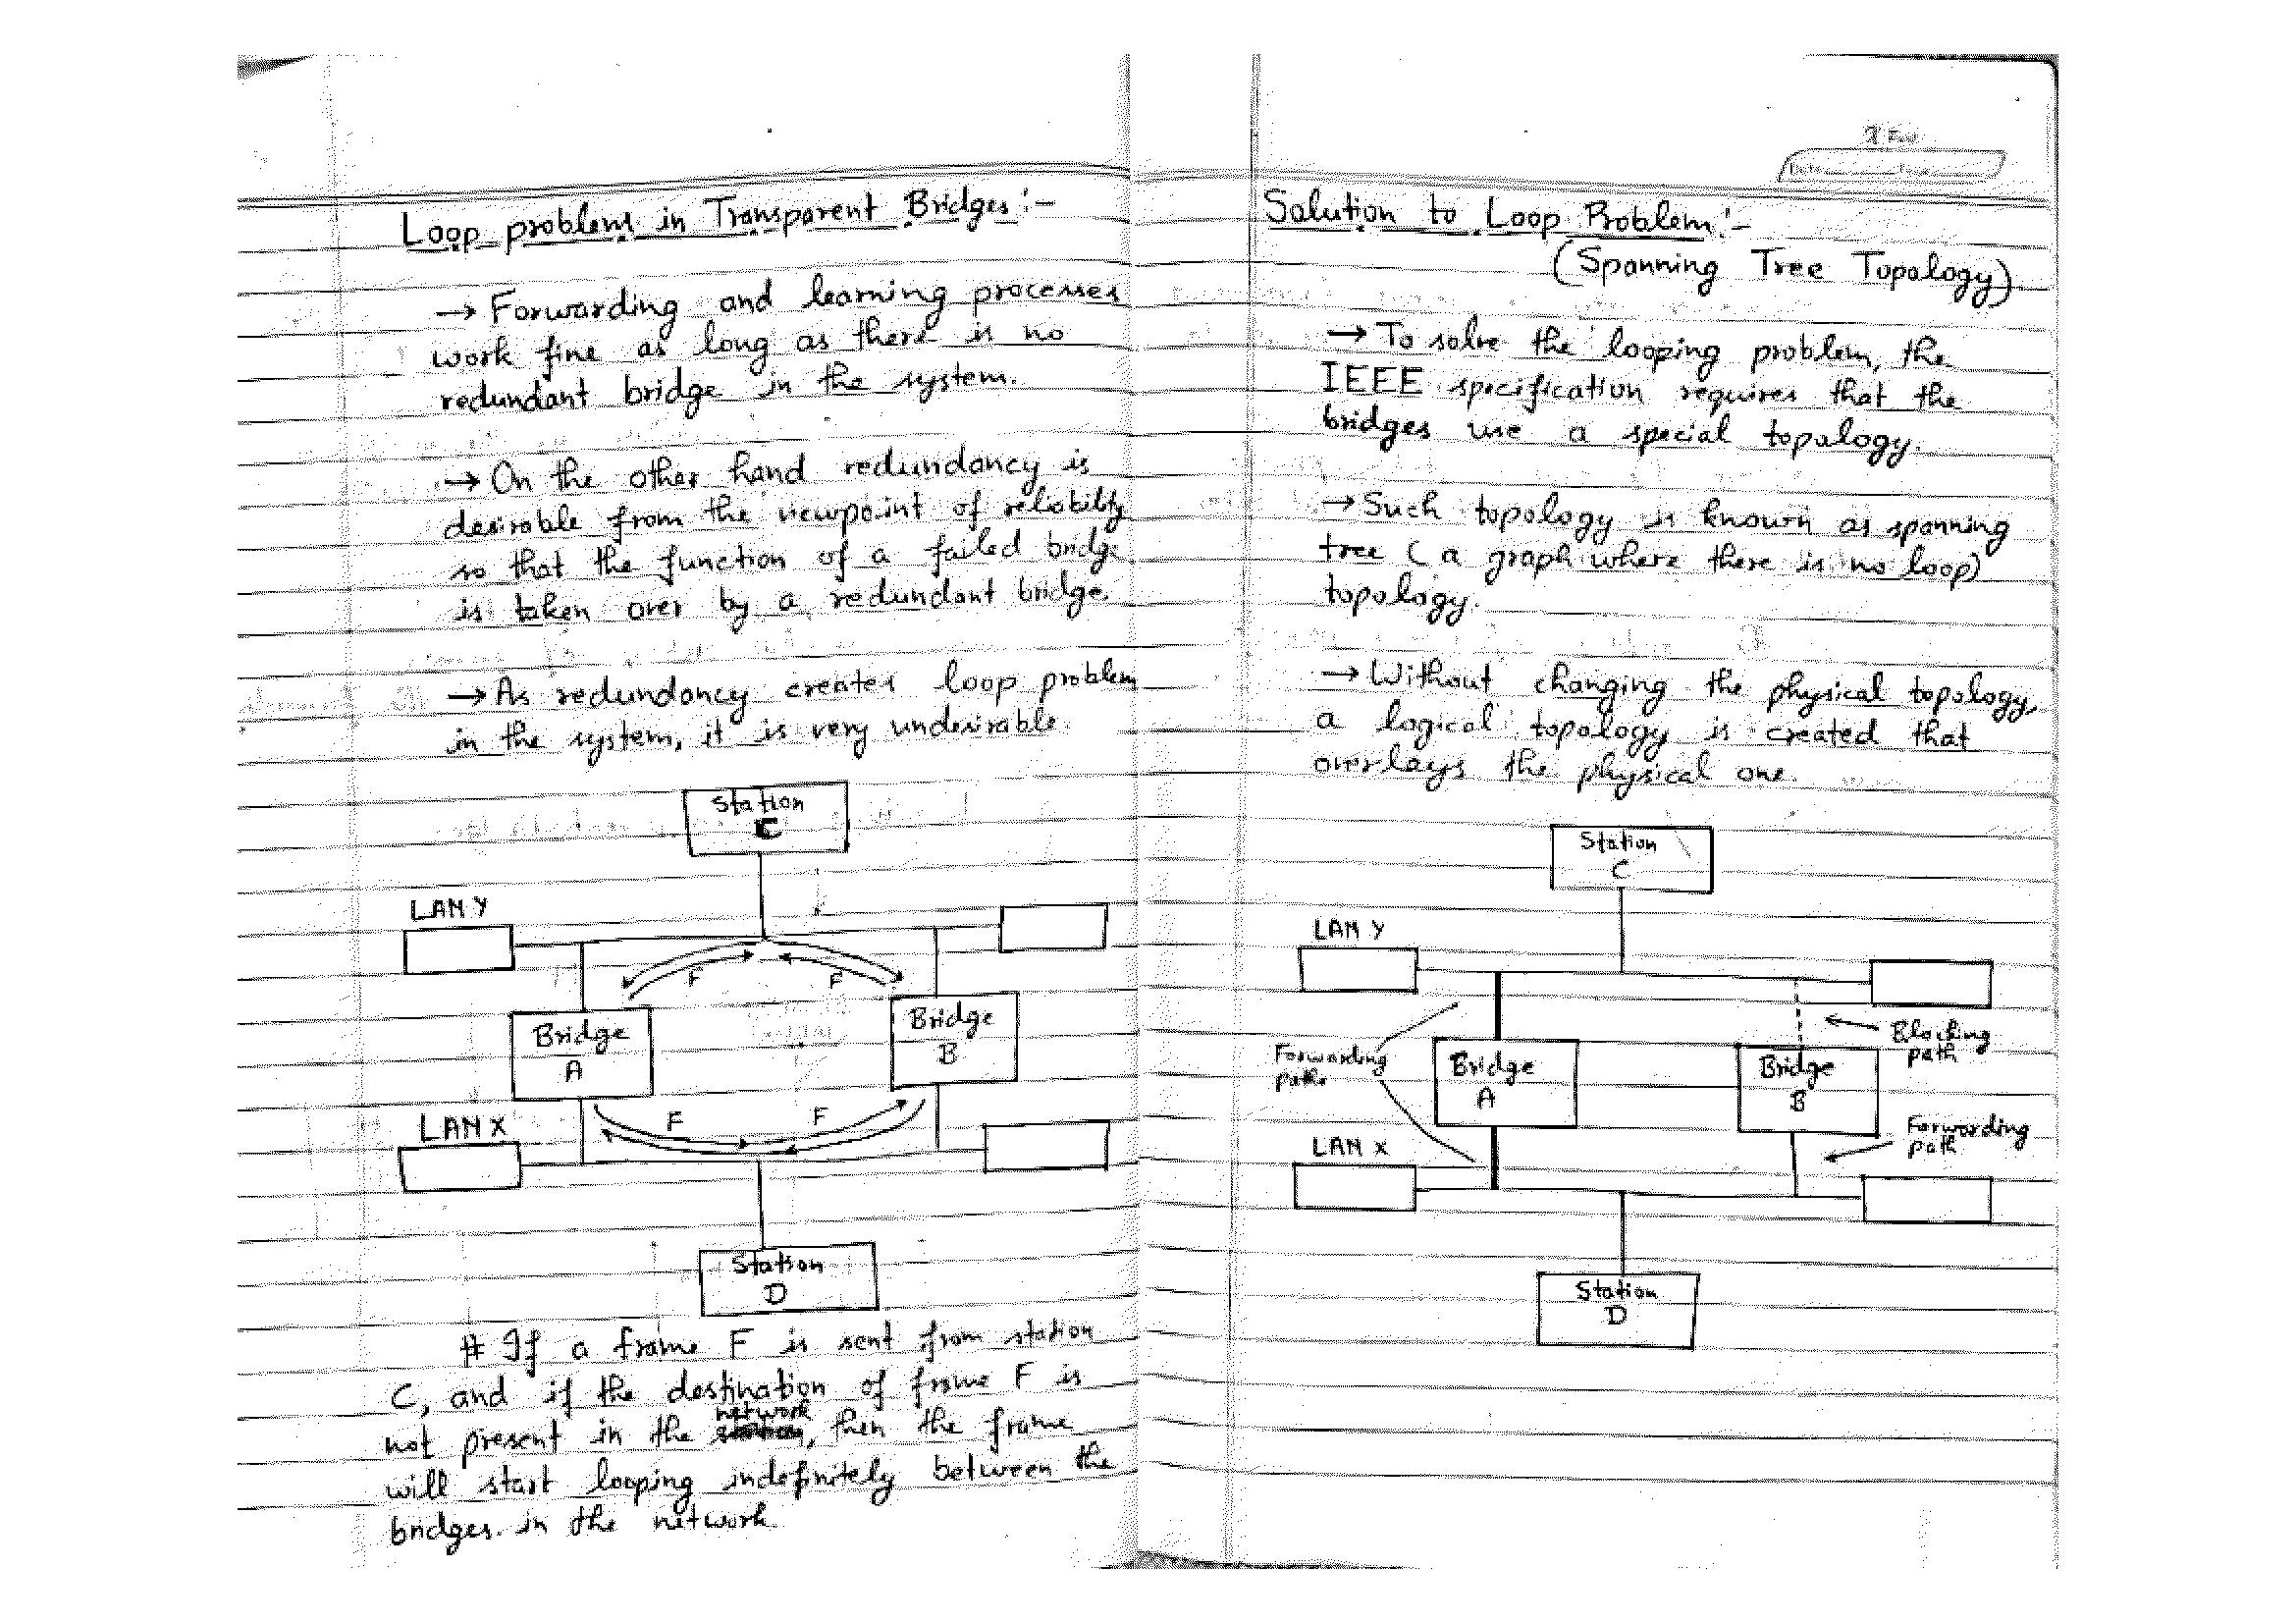 Loop problems in Transparent Bridges:-
→ Forwarding and learning processes
work fine as long as there is no
redundant bridge in the system.
→ On the other hand redundancy is
desirable from the viewpoint of reliability
so that the function of a failed bridge
is taken over by a redundant bridge.
→ As redundancy creates loop problem
in the system, it is very undesirable.
Station
C
LAN Y
F
F
Bridge
A
Bridge
B
F
F
LAN X
Station
D
# If a frame F is sent from station
C, and if the destination of frame F is
not present in the network, then the frame
will start looping indefinitely between the
bridges in the network
Solution to Loop Problem:-
(Spanning Tree Topology)
→ To solve the looping problem, the
IEEE specification requires that the
bridges use a special topology.
→ Such topology is known as spanning
tree (a graph where there is no loop)
topology.
→ Without changing the physical topology,
a logical topology is created that
overlays the physical one.
Station
C
LAN Y
Forwarding
path
Bridge
A
Bridge
B
Blocking
path
Forwarding
path
LAN X
Station
D